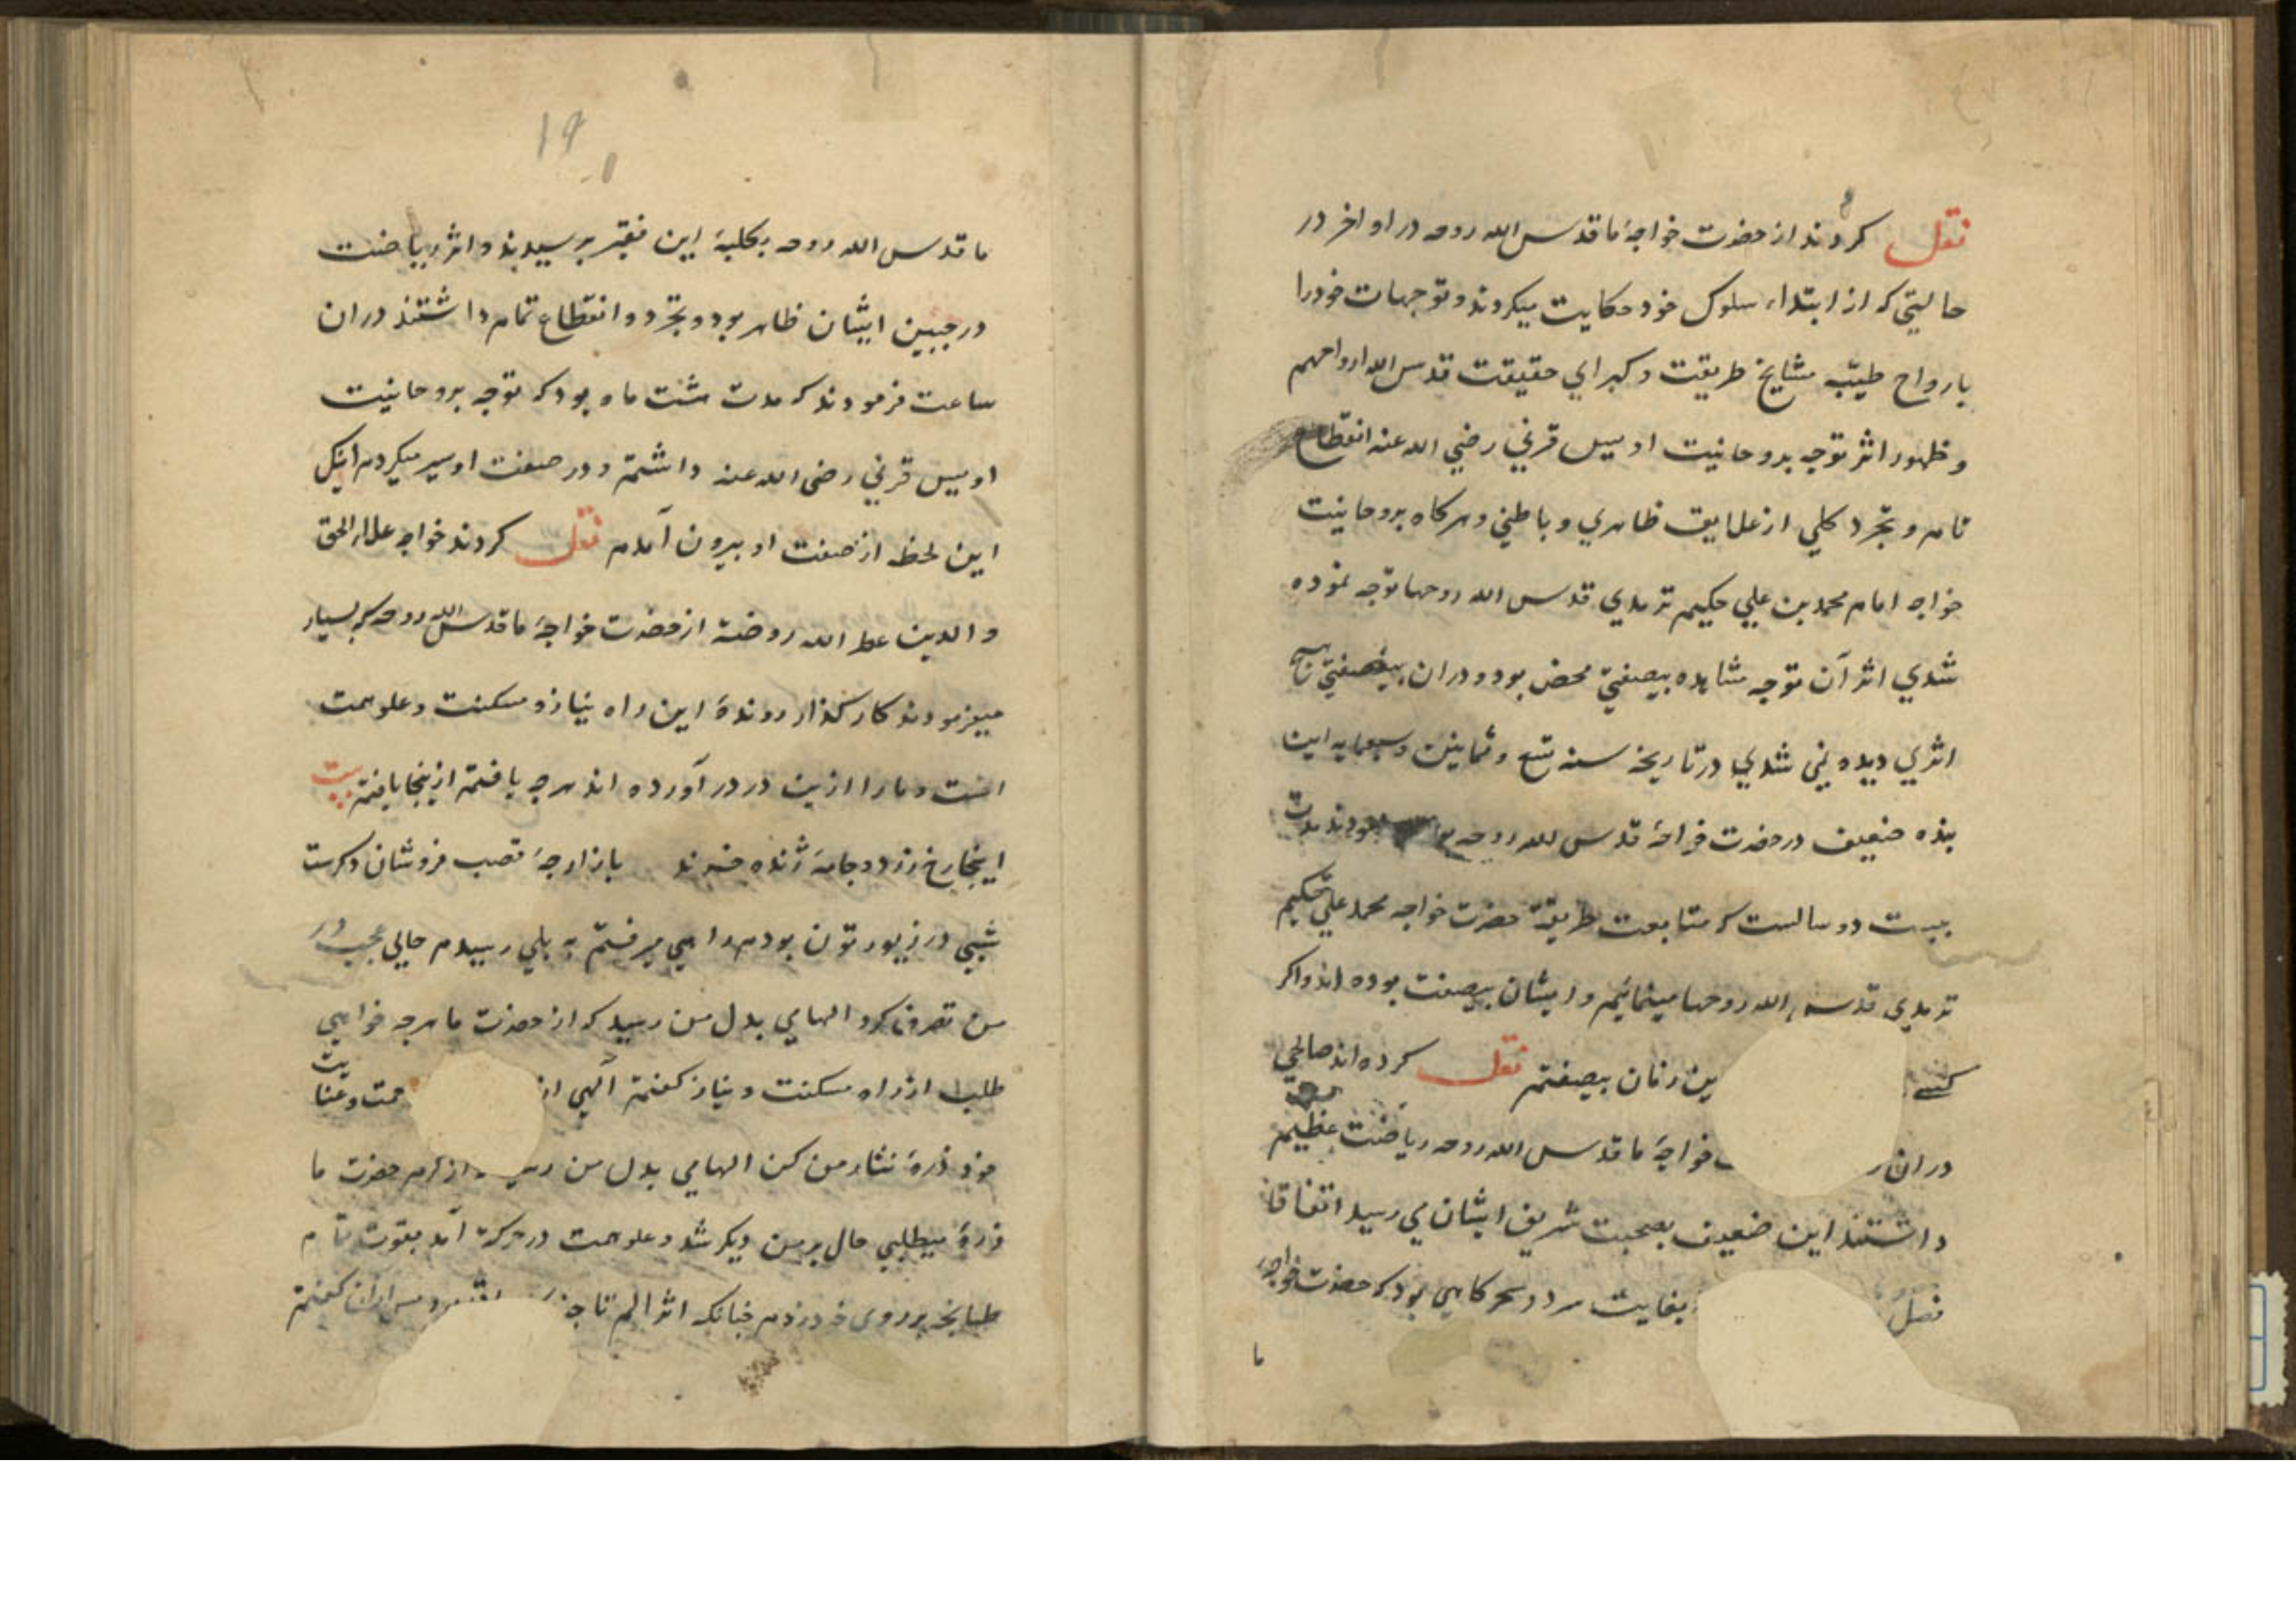 نقل کردند از حضرت خواجهٔ ما قدس الله روحه در اواخر در
حالتی که از ابتداء سلوک خود حکایت میکردند و توجهات خود را
بارواح طیبّه مشایخ طریقت و کبرای حقیقت قدس الله ارواحهم
و ظهور اثر توجه بروحانیت اویس قرنی رضی الله عنه انقطاع
تام و تجرد کلی از علایق ظاهری و باطنی و هرکاه بروحانیت
خواجه امام محمد بن علی حکیم ترمدی قدس الله روحهما توجه نموده
شدی اثر آن توجه مشاهده بیصفتی محض بود و دران بیصفتی هیچ
اثری دیده نی شدی در تاریخ سنه تسع و ثمانین و سبعمایه این
بنده ضعیف در حضرت خواجهٔ قدس الله روحه بودند مدت
بیست دو سالست که متابعت طریقهٔ حضرت خواجه محمد علی حکیم
ترمدی قدس الله روحهما مینمائیم و ایشان بیصفت بوده اند و اکر
کسی این زمان بیصفتم نقل کرده اند صالحی
دران خواجهٔ ما قدس الله روحه ریاضت عظیم
داشتند این ضعیف بصحبت شریف ایشان می رسید اتفاقا
فصل بغایت سرد و سحرکاهی بود که حضرت خواجهٔ
ما
19
ما قدس الله روحه بکلبهٔ این فقیر برسیدند و اثر ریاضت
در جبین ایشان ظاهر بود و تجرد و انقطاع تمام داشتند دران
ساعت فرمودند که مدت شت ماه بود که توجه بروحانیت
اویس قرنی رضی الله عنه داشتم و در صفت او سیر میکردم اینک
این لحظه از صفت او بیرون آمدم نقل کردند خواجه علاء الحق
والدین عطر الله روضته از حضرت خواجهٔ ما قدس الله روحه که بسیار
میفرمودند کار کذار روندهٔ این راه نیاز و مسکنت و علو همت
است و ما را ازین در در آورده اند هرچه یافتم ازینجا یافتم بیت
اینجا رخ زرد و جامهٔ ژنده خرند بازارچهٔ قصب فروشان دکرست
شبی در زیورتون بودم راهی میرفتم به پلی رسیدم حالی عجب در
من تصرف کرد الهامی بدل من رسید که از حضرت ما هرچه خواهی
طلب از راه مسکنت و نیاز کفتم آلهی از حمت و عنایت
خود ذرهٔ نثار من کن الهامی بدل من رسید از کرم حضرت ما
ذرهٔ میطلبی حال بر من دیکر شد و علو همت در حرکت آمد بقوت تمام
طبانچه بر روی خود زدم جنانکه اثر الم تا جند پس ازان کفتم